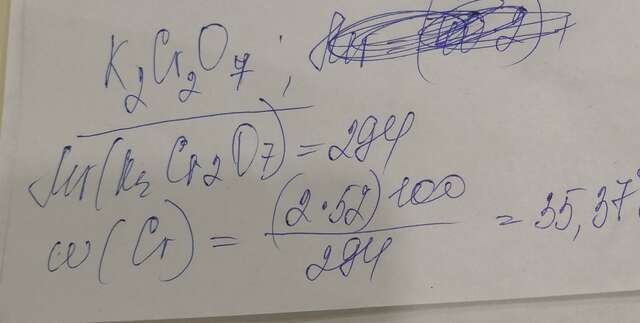 K₂Cr₂O₇;
Mr(K₂Cr₂O₇) = 294
ω(Cr) = (2·52)100 / 294 = 35,37